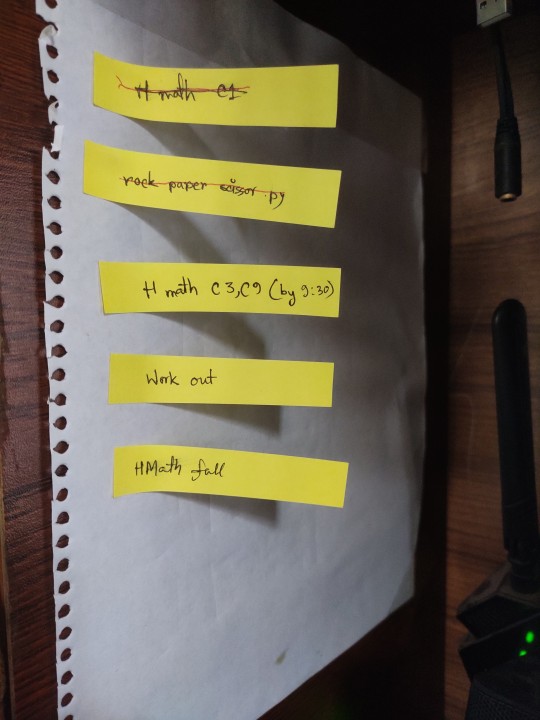 H math C1
rock paper scissor.py
H math C3,C9 (by 9:30)
Work out
HMath full